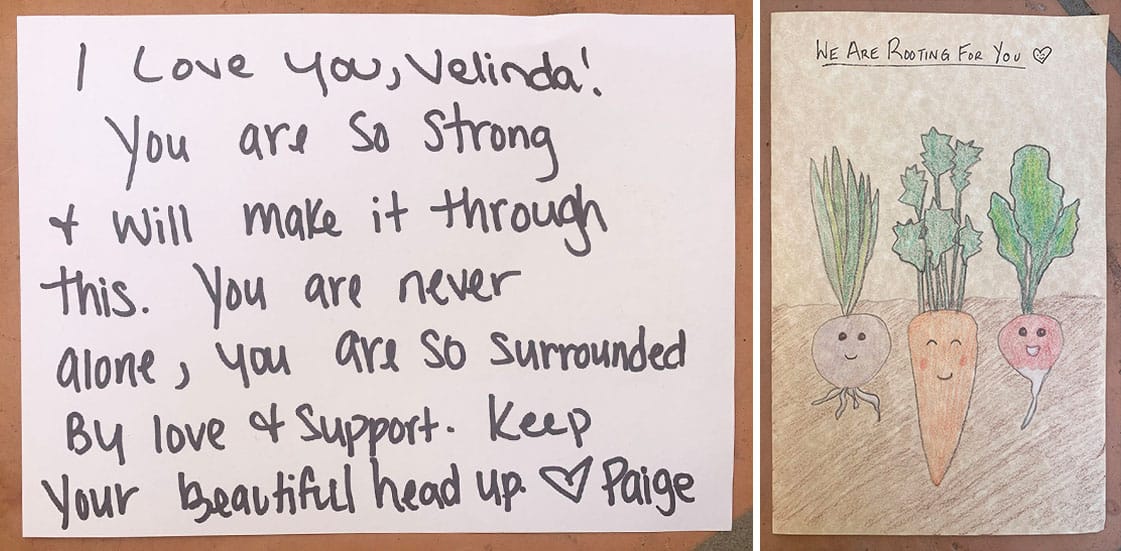 I Love you, Velinda!
You are so strong
& will make it through
this. You are never
alone, you are so surrounded
By love & support. Keep
your beautiful head up. ♡ Paige
We Are Rooting For You ♡